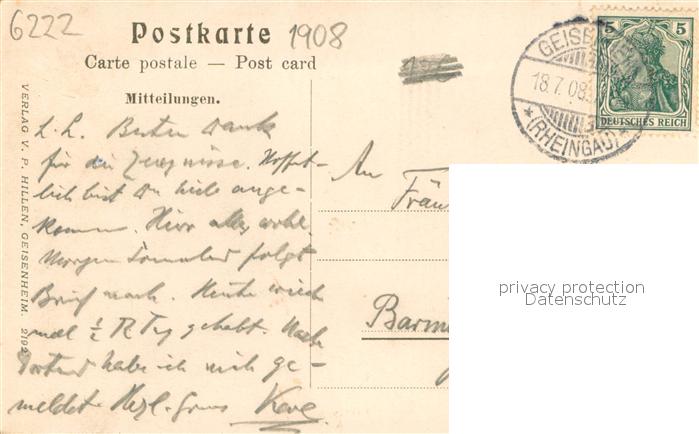 6222
Postkarte 1908
Carte postale — Post card
Mitteilungen.
L. L. Besten Dank
für die Zeugnisse. Hoffent-
lich bist Du heile ange-
kommen. Hier alles wohl.
Morgen Sonnabend folgt
Brief nach. Heute wieder
mal ½ Tag gehabt. Nach
Dortmund habe ich mich ge-
meldet. Herzl. Gruss
An
Fräu
Barm
VERLAG V. P. HILLEN, GEISENHEIM. 2192
GEISENHEIM
18.7.08
(RHEINGAU)
5 5
DEUTSCHES REICH
privacy protection
Datenschutz